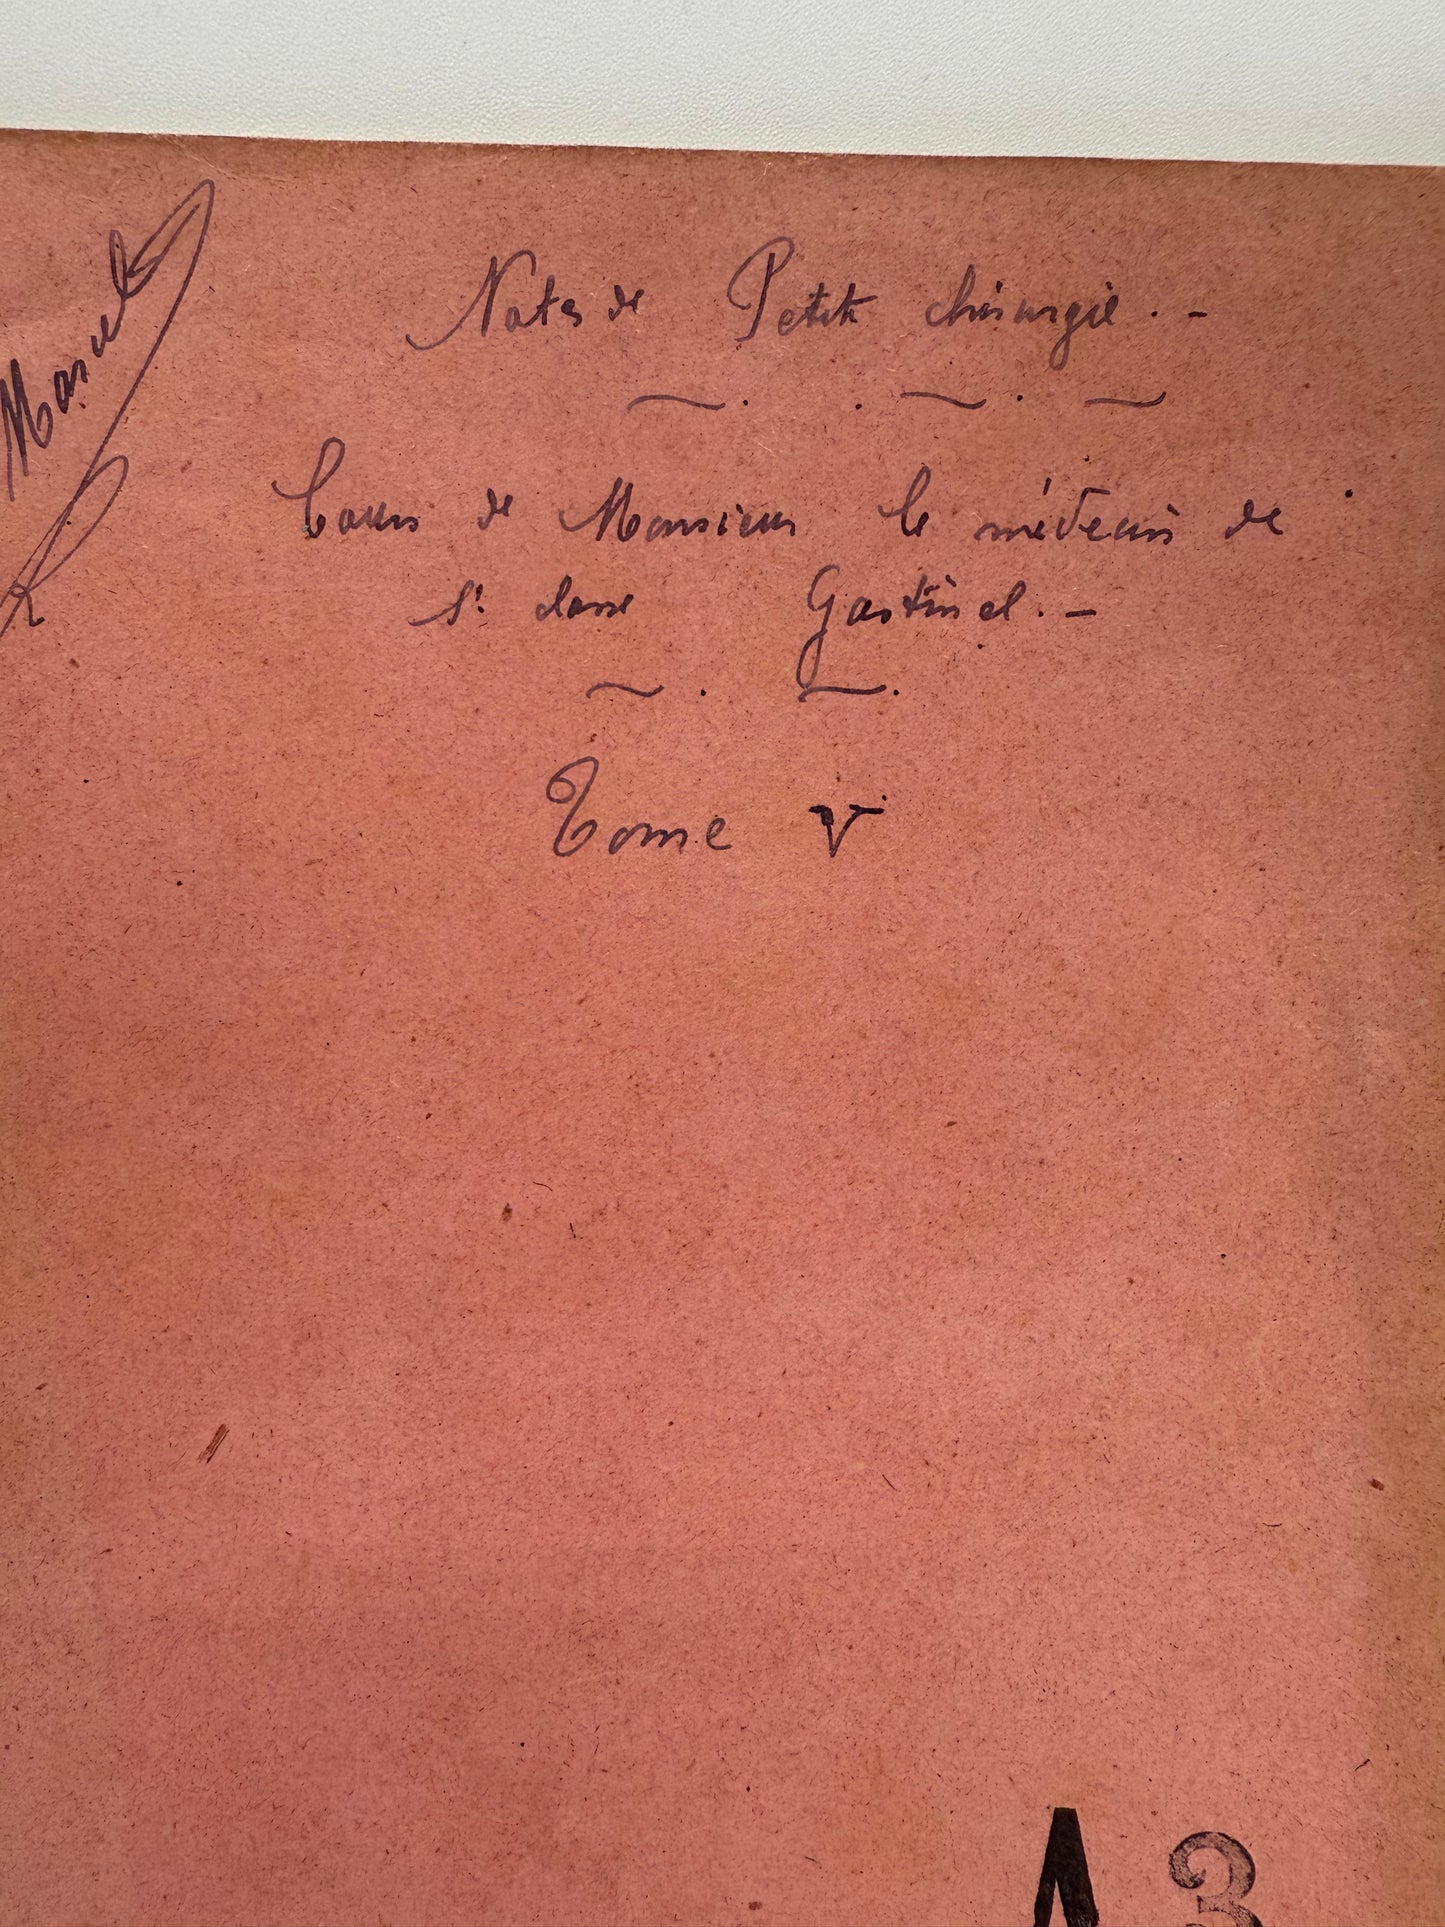 Marcel
Notes de Petite chirurgie. -
Cours de Monsieur le médecin de
1e: classe Gastinel. -
Tome V
A 3